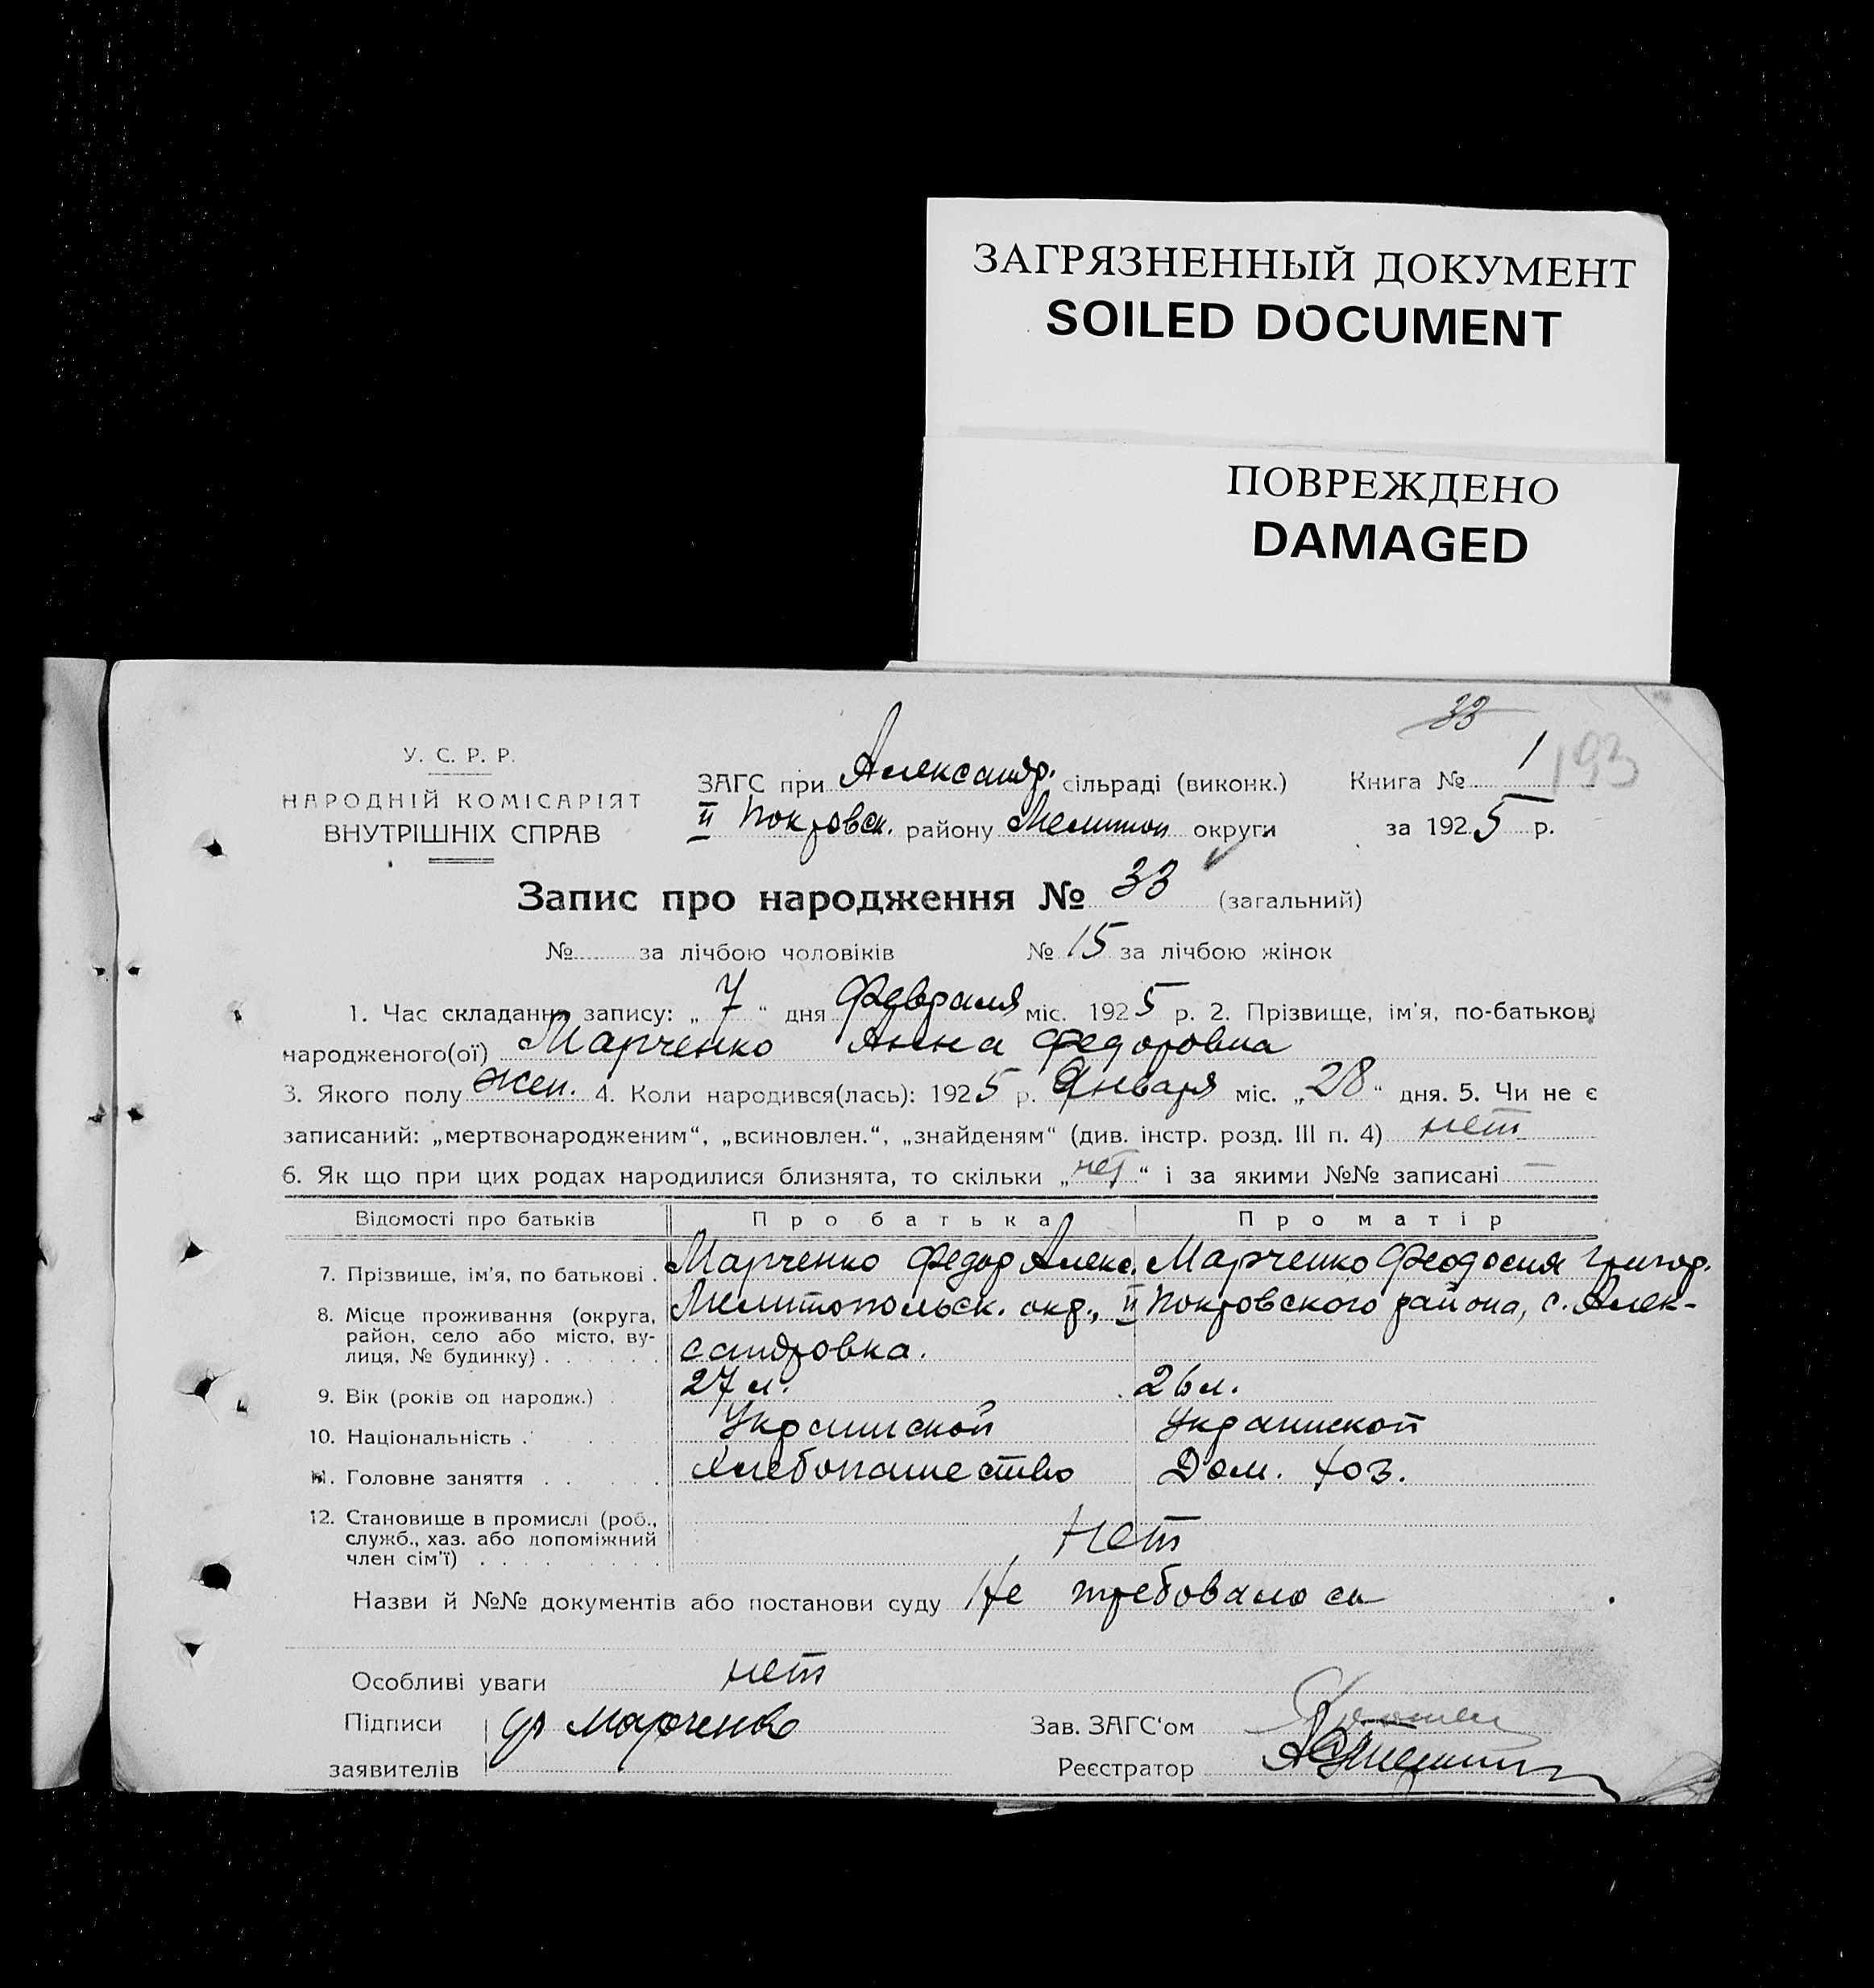 ЗАГРЯЗНЕННЫЙ ДОКУМЕНТ
SOILED DOCUMENT
ПОВРЕЖДЕНО
DAMAGED
33
193
У. С. Р. Р.
НАРОДНІЙ КОМІСАРІЯТ
ВНУТРІШНІХ СПРАВ
ЗАГС при Александр. сільраді (виконк.) Книга № 1
II Покровск. району Мелитоп округи за 1925 р.
Запис про народження № 33 (загальний)
№ за лічбою чоловіків № 15 за лічбою жінок
1. Час складання запису: „ 7 “ дня Февраля міс. 1925 р. 2. Прізвище, ім’я, по-батькові
народженого(ої) Марченко Анна Федоровна
3. Якого полу жен. 4. Коли народився(лась): 1925 р. Января міс. „28“ дня. 5. Чи не є
записаний: „мертвонародженим“, „всиновлен.“, „знайденям“ (див. інстр. розд. III п. 4) нет
6. Як що при цих родах народилися близнята, то скільки „нет“ і за якими №№ записані —
Відомості про батьків Про батька Про матір
7. Прізвище, ім’я, по батькові . Марченко Федор Алекс. Марченко Феодосия Григор.
8. Місце проживання (округа, район, село або місто, вулиця, № будинку) . Мелитопольск. окр., II Покровского района, с. Александровка.
9. Вік (років од народж.) 27 л. 26 л.
10. Національність . Украинской Украинской
11. Головне заняття . Хлебопашество Дом. хоз.
12. Становище в промислі (роб.,
служб., хаз. або допоміжний
член сім’ї) . Нет
Назви й №№ документів або постанови суду Не требовалось
Особливі уваги нет
Підписи Марченко Зав. ЗАГС‘ом
заявителів Реєстратор